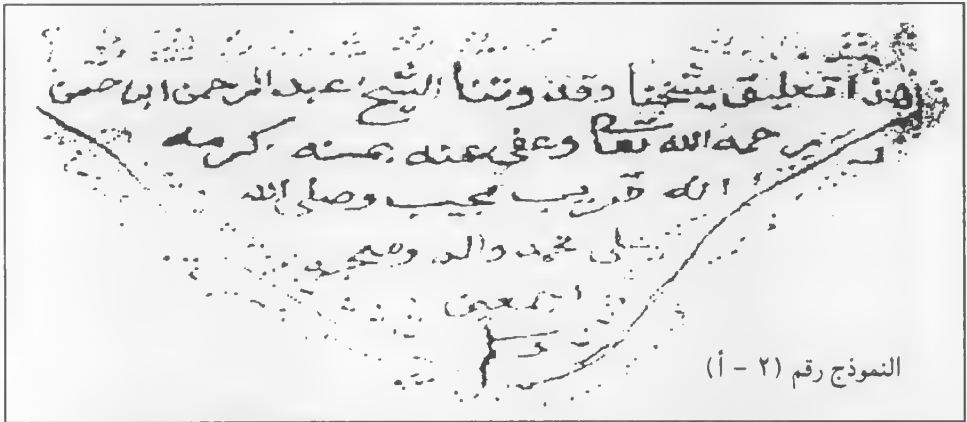 هذا تعليق شيخنا وقدوتنا الشيخ عبد الرحمن ابن حسن
رحمه الله تعا وعفى عنه بمنه كرمه
انه قريب مجيب وصلى الله
على محمد واله وصحبه
اجمعين
النموذج رقم (٢ - أ)